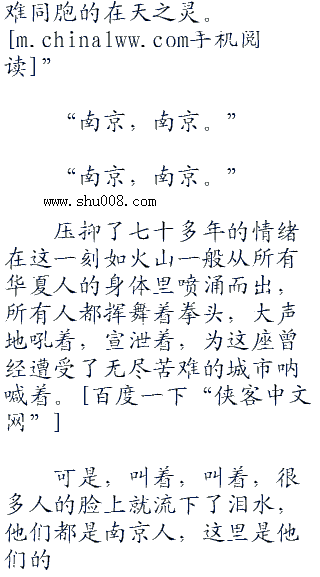 难同胞的在天之灵。
[m.chinalww.com手机阅
读]”
“南京，南京。”
“南京，南京。”
www.shu008.com
压抑了七十多年的情绪
在这一刻如火山一般从所有
华夏人的身体里喷涌而出，
所有人都挥舞着拳头，大声
地吼着，宣泄着，为这座曾
经遭受了无尽苦难的城市呐
喊着。[百度一下“侠客中文
网”]
可是，叫着，叫着，很
多人的脸上就流下了泪水，
他们都是南京人，这里是他
们的